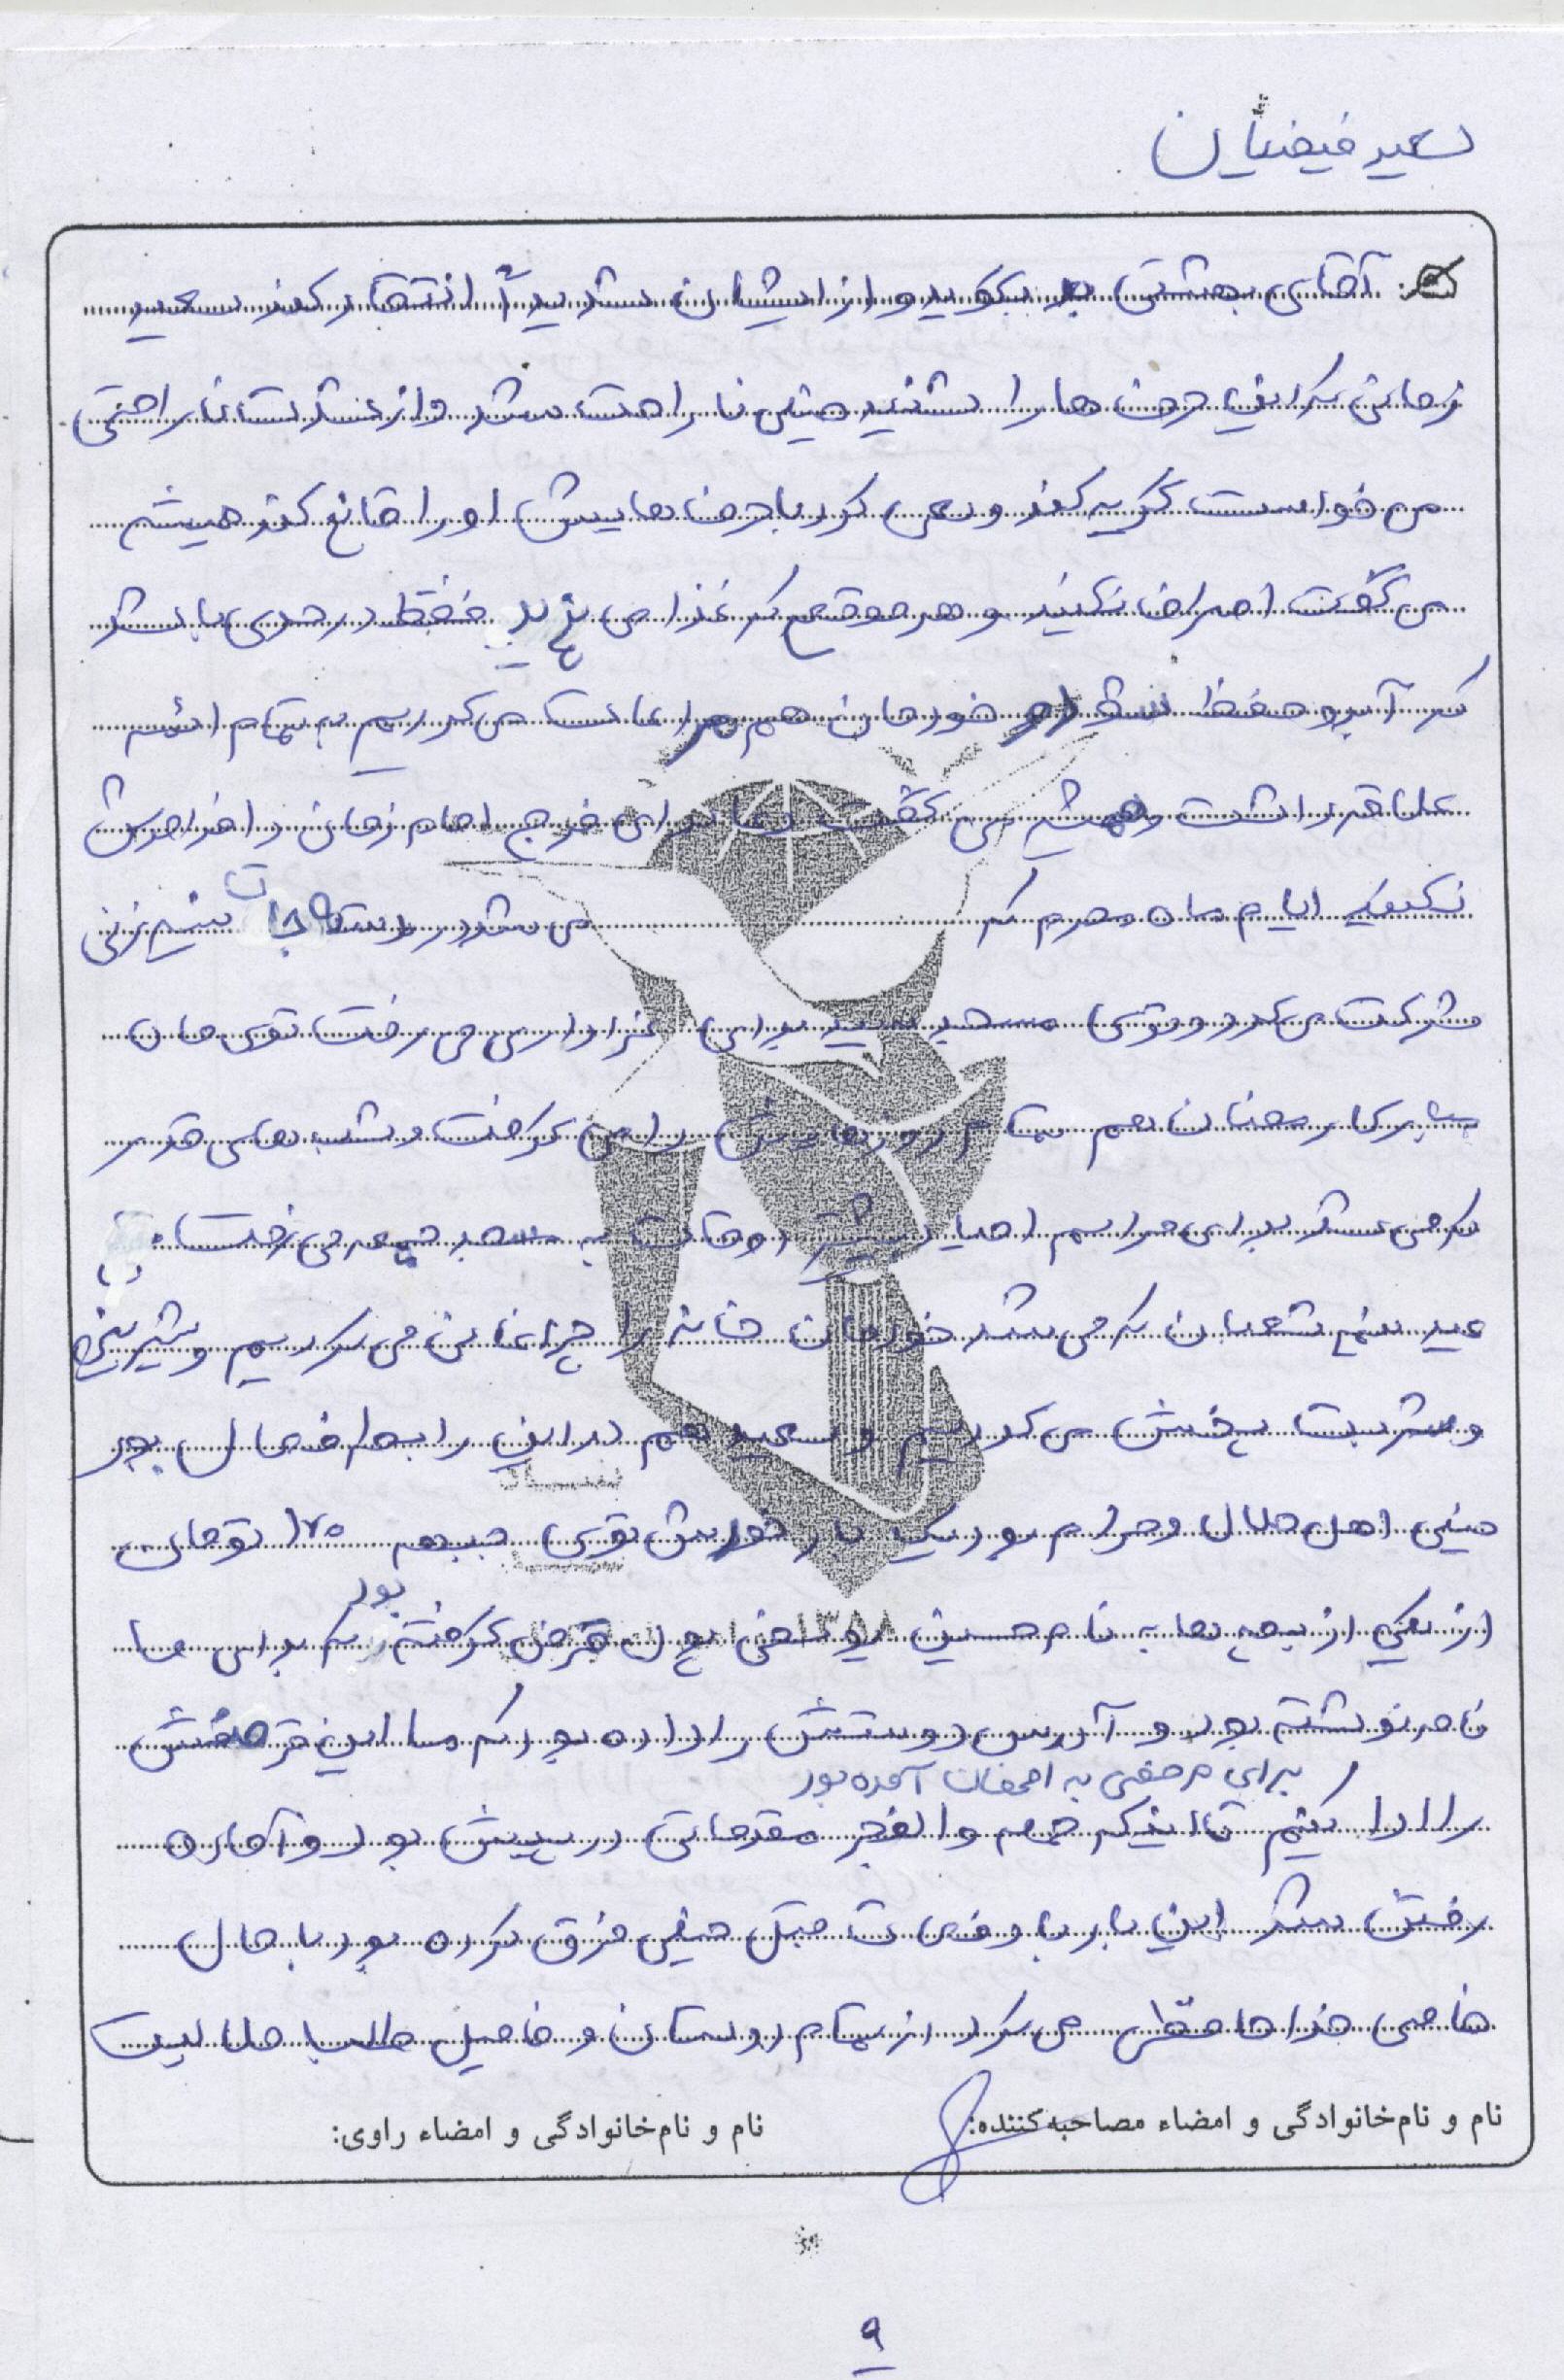 سعید فیضیان
آقای بهشتی بد بگوید و از ایشان شدیداً انتقاد کند سعید
زمانی که این حرف ها را شنید خیلی ناراحت شد و از شدت ناراحتی
می خواست گریه کند و سعی کرد با حرف هایش او را قانع کند همیشه
می گفت اصراف نکنید و هر موقع که غذا می پزید فقط در حدی باشد
که آبرو حفظ شود خودمان هم مراعات می کردیم به تمام ائمه
علاقه داشت و همیشه می گفت دعا برای فرج امام زمان را فراموش
نکنید ایام ماه محرم که می شد در دسته جات سینه زنی
شرکت می کرد و توی مسجد سید برای عزاداری می رفت توی ماه
مبارک رمضان هم تمام روزه هایش را می گرفت و شب های قدر
که می شد برای مراسم احیا بیشتر اوقات به مسجد جمعه می رفت
عید نیمه شعبان که می شد خودمان خانه را چراغانی می کردیم و شیرینی
و شربت پخش می کردیم و سعید هم در این رابطه فعال بود
خیلی اهل حلال و حرام بود یک بار خودش توی جبهه ۱۷۰ تومان
از یکی از بچه ها به نام حسین یوسفی پول قرض گرفته بود که برای ما
نامه نوشته بود و آدرس دوستش را داده بود که ما این قرضش
برای مرخصی به اصفهان آمده بود
را ادا کنیم تا اینکه حمله والفجر مقدماتی در پیش بود و آماده
رفتن شد این بار با دفعات قبل خیلی فرق کرده بود با حال
خاصی خداحافظی می کرد از تمام دوستان و فامیل طلب حلالیت
نام و نام‌خانوادگی و امضاء مصاحبه‌کننده:
نام و نام‌خانوادگی و امضاء راوی:
۱۳۵۸
۹